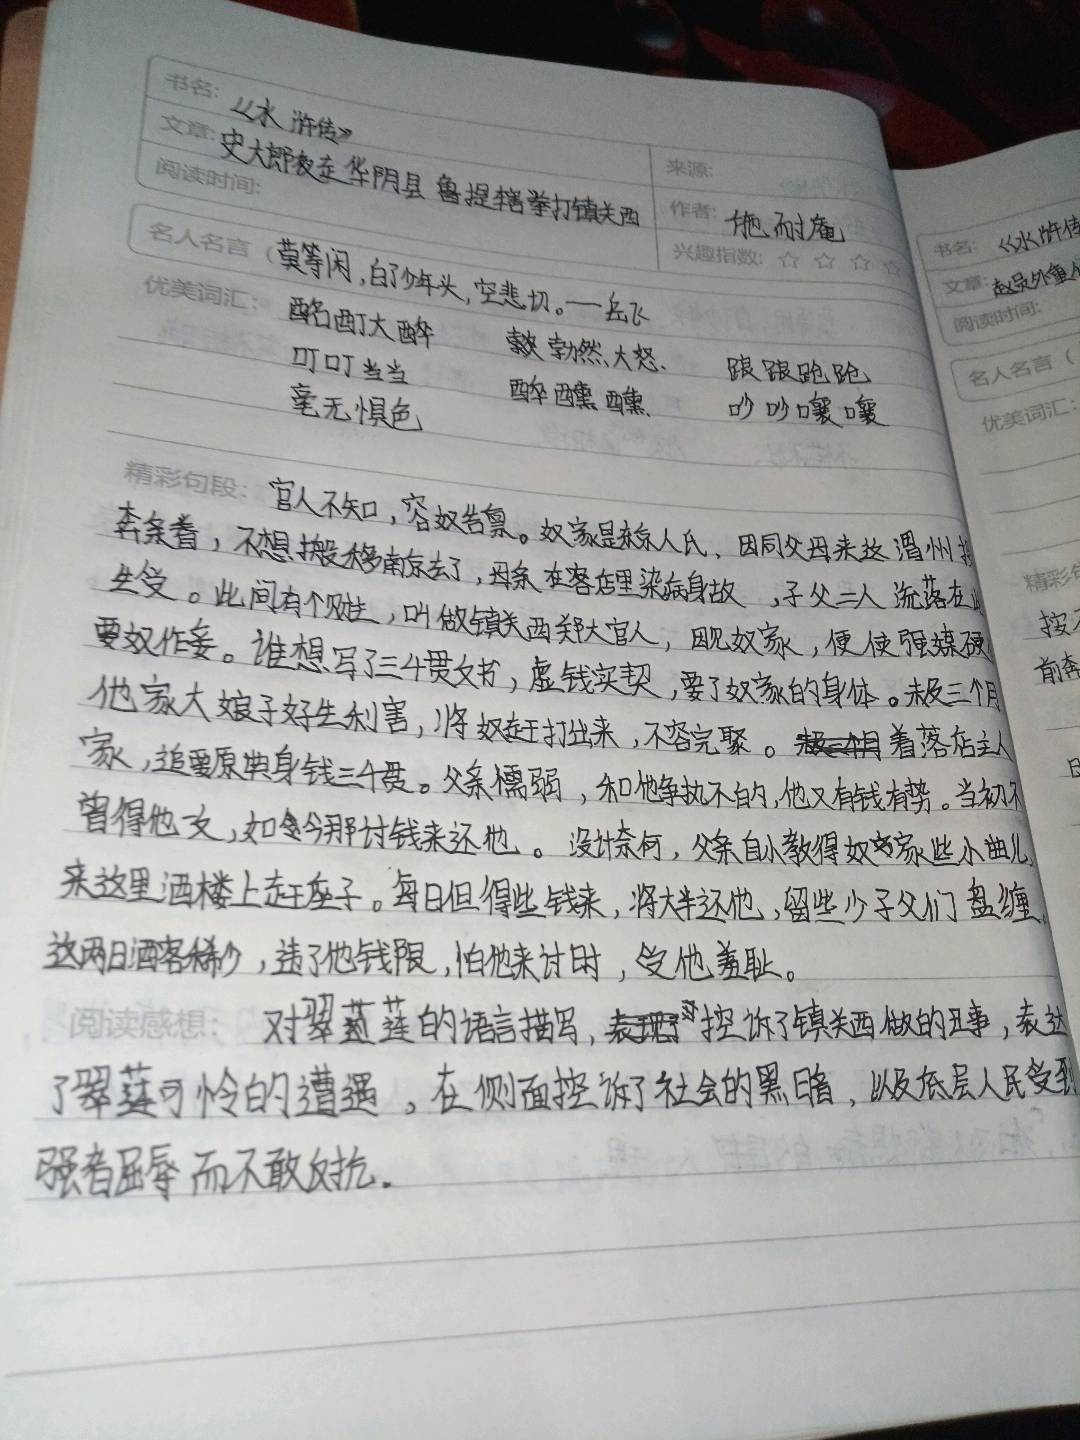 书名: 《水浒传》
文章: 史大郎夜走华阴县 鲁提辖拳打镇关西
来源:
阅读时间:
作者: 施耐庵
兴趣指数: ☆ ☆ ☆ ☆
名人名言（莫等闲,白了少年头,空悲切。——岳飞
优美词汇: 酩酊大醉 勃然大怒. 踉踉跄跄
叮叮当当 醉醺醺. 吵吵嚷嚷
毫无惧色
精彩句段: 官人不知,容奴告禀。奴家是东京人氏,因同父母来这渭州投
奔亲眷,不想搬移南京去了,母亲在客店里染病身故,子父二人流落在此
生受。此间有个财主,叫做镇关西郑大官人,因见奴家,便使强媒硬
要奴作妾。谁想写了三千贯文书,虚钱实契,要了奴家的身体。未及三个月
他家大娘子好生利害,将奴赶打出来,不容完聚。着落店主人
家,追要原典身钱三千贯。父亲懦弱,和他争执不的,他又有钱有势。当初不
曾得他文,如今那讨钱来还他。没计奈何,父亲自小教得奴家些小曲儿
来这里酒楼上赶座子。每日但得些钱来,将大半还他,留些少子父们盘缠。
这两日酒客稀少,违了他钱限,怕他来讨时,受他羞耻。
阅读感想: 对翠莲的语言描写,控诉了镇关西做的丑事,表达
了翠莲可怜的遭遇,在侧面控诉了社会的黑暗,以及底层人民受到
强者屈辱而不敢反抗.
书名: 《水浒传
文章: 赵员外重
阅读时间:
名人名言（
优美词汇:
精彩句
按
前奔